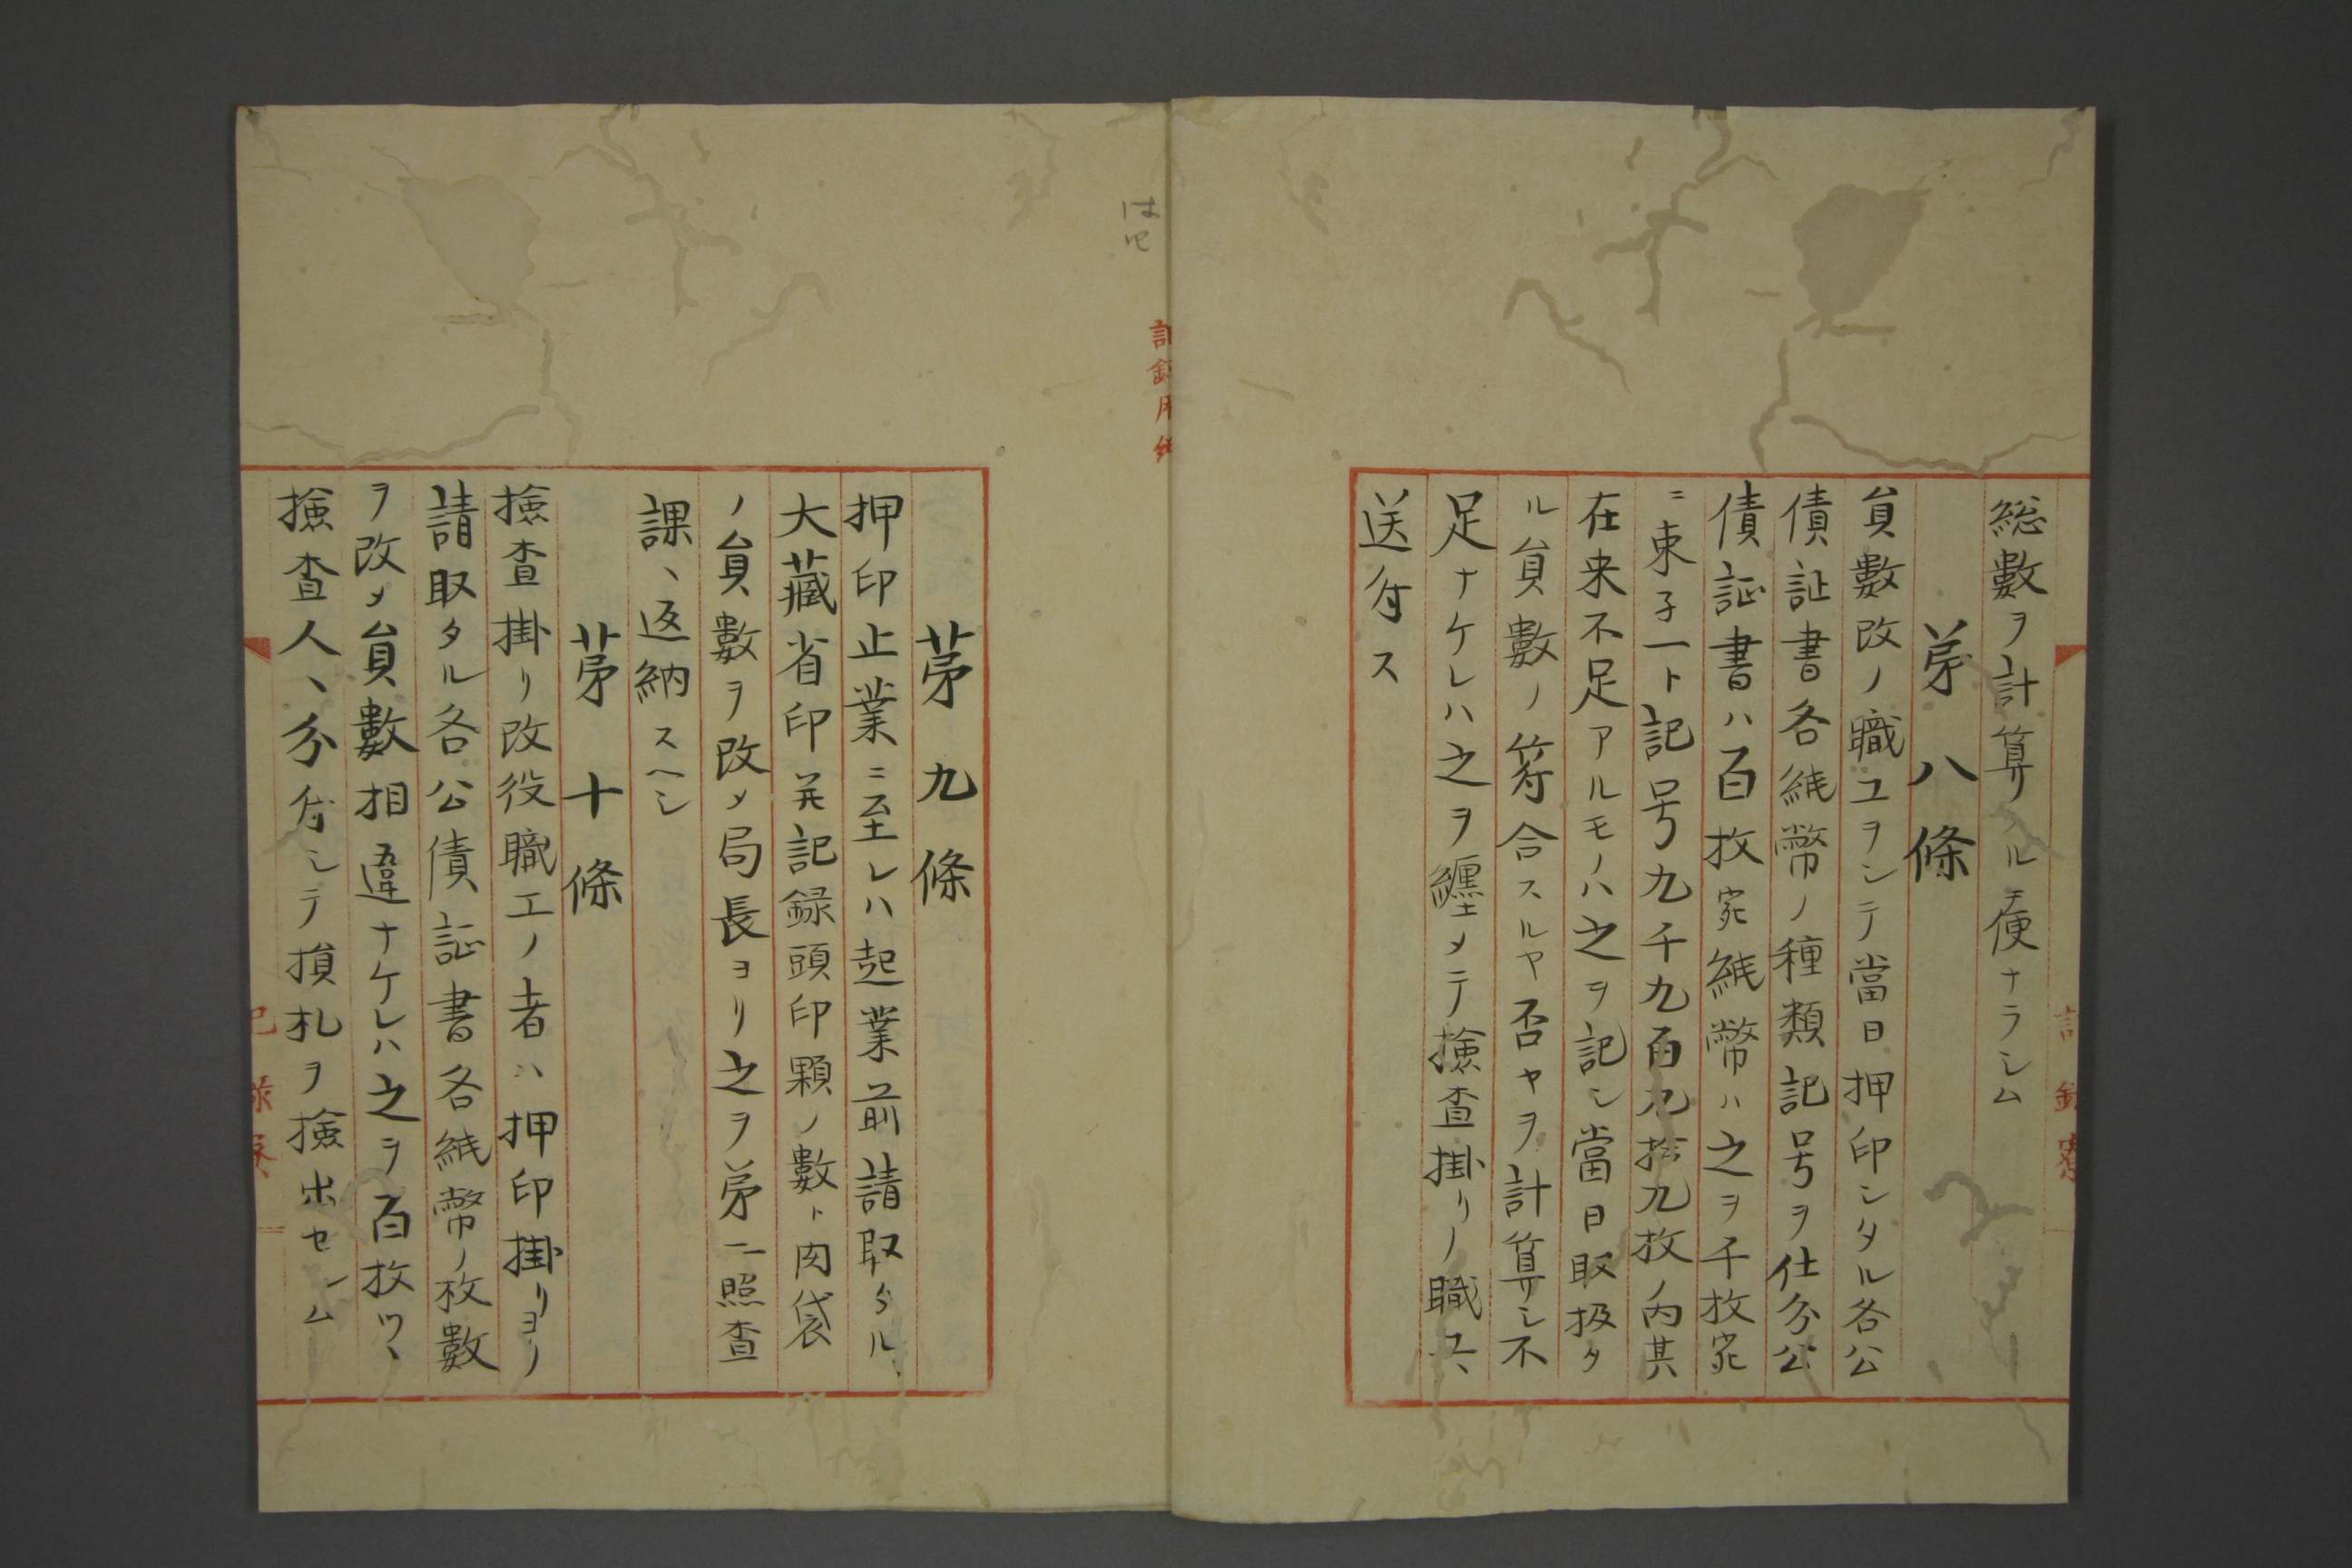 総數ヲ計算スルニ便ナラシム
苐八條
員數改ノ職工ヲシテ當日押印シタル各公
債証書各紙幣ノ種類記号ヲ仕分公
債証書ハ百枚宛紙幣ハ之ヲ千枚宛
ニ束子一ト記号九千九百九拾九枚ノ内其
在来不足アルモノハ之ヲ記シ當日取扱タ
ル員數ノ符合スルヤ否ヤヲ計算シ不
足ナケレハ之ヲ纏メテ撿査掛リノ職工ヘ
送付ス
苐九條
押印止業ニ至レハ起業前請取タル
大藏省印并記録頭印顆ノ數ト肉袋
ノ員數ヲ改メ局長ヨリ之ヲ苐二照査
課ヘ返納スヘシ
苐十條
撿査掛リ改役職工ノ者ハ押印掛リヨリ
請取タル各公債証書各紙幣ノ枚數
ヲ改メ員數相違ナケレハ之ヲ百枚ツヽ
撿査人ヘ分付シテ損札ヲ撿出セシム
記録寮